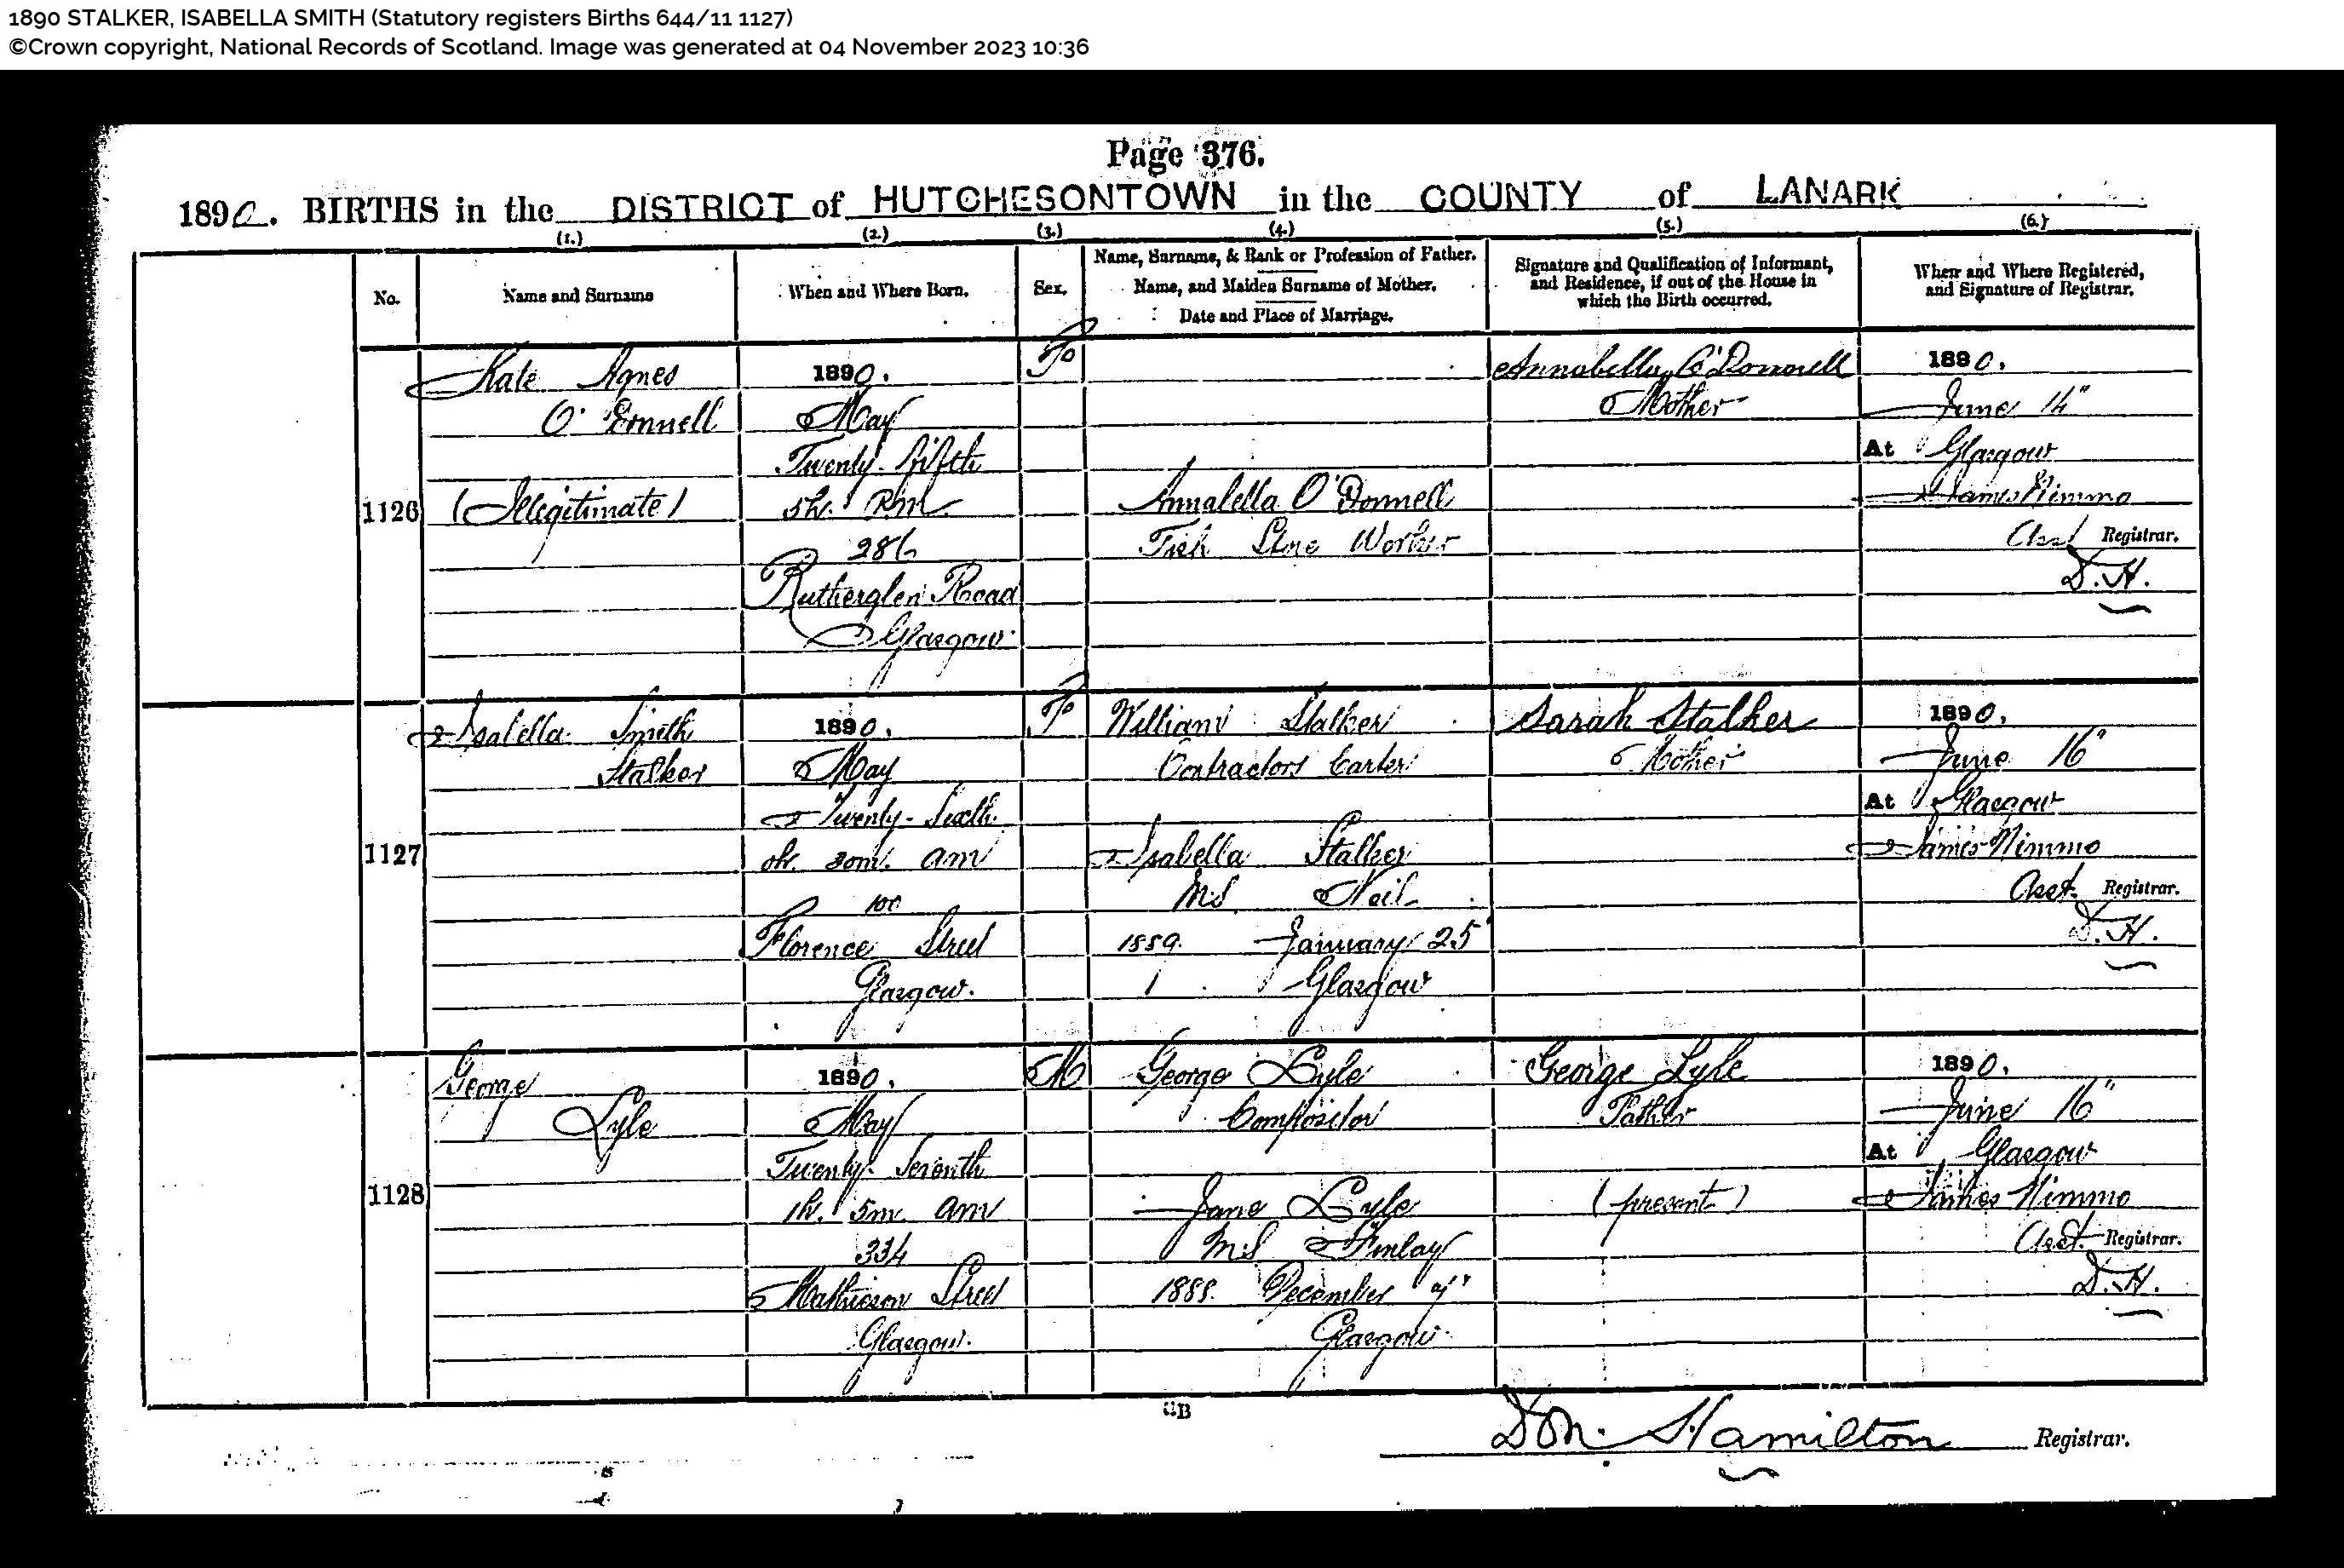 1890 STALKER, ISABELLA SMITH (Statutory registers Births 644/11 1127)
©Crown copyright, National Records of Scotland. Image was generated at 04 November 2023 10:36
Page 376.
1890. BIRTHS in the DISTRICT of HUTCHESONTOWN in the COUNTY of LANARK
(1.) (2.) (3.) (4.) (5.) (6.)
No.
Name and Surname
When and Where Born.
Sex.
Name, Surname, & Rank or Profession of Father.
Name, and Maiden Surname of Mother.
Date and Place of Marriage.
Signature and Qualification of Informant,
and Residence, if out of the House in
which the Birth occurred.
When and Where Registered,
and Signature of Registrar.
1126
Kate Agnes
O'Donnell
(Illegitimate)
1890.
May
Twenty-fifth
5h. P.M.
286
Rutherglen Road
Glasgow.
F
Annabella O'Donnell
Fish Store Worker
Annabella O'Donnell
Mother
1890.
June 14"
At Glasgow
James Nimmo
Asst Registrar.
D.H.
1127
Isabella Smith
Stalker
1890.
May
Twenty-Sixth
0h. 30m. AM
100
Florence Street
Glasgow.
F
William Stalker
Contractors Carter
Isabella Stalker
M.S. Neil
1889. January 25"
Glasgow
Sarah Stalker
Mother
1890.
June 16"
At Glasgow
James Nimmo
Asst. Registrar.
D.H.
1128
George
Lyle
1890.
May
Twenty-Seventh
1h. 5m. AM
334
Mathieson Street
Glasgow.
M
George Lyle
Compositor
Jane Lyle
M.S. Finlay
1888. December 7"
Glasgow
George Lyle
Father
(present)
1890.
June 16"
At Glasgow
James Nimmo
Asst. Registrar.
D.H.
Hamilton Registrar.